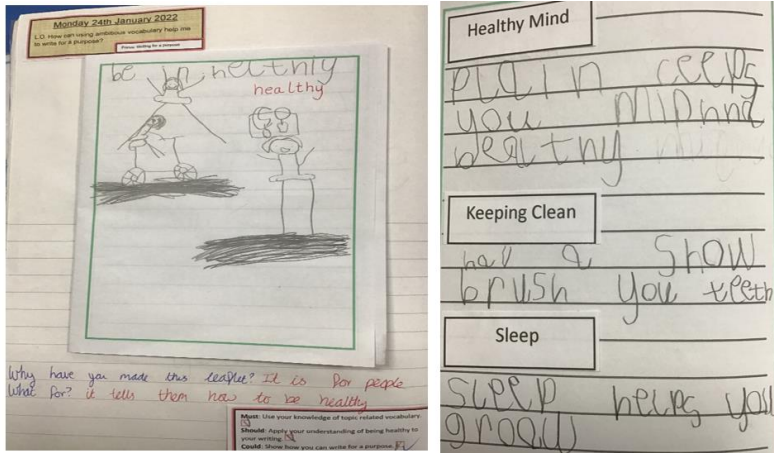 Monday 24th January 2022
L.O. How can using ambitious vocabulary help me
to write for a purpose?
Focus: Writing for a purpose
be in helthly
healthy
Why have you made this leaflet? It is for people
What for? it tells them how to be healthy
Must: Use your knowledge of topic related vocabulary.
Should: Apply your understanding of being healthy to
your writing.
Could: Show how you can write for a purpose.
Healthy Mind
plain ceeps
you
healtny
Keeping Clean
hav a Show
brush you teeth
Sleep
sleep helps you
groaw